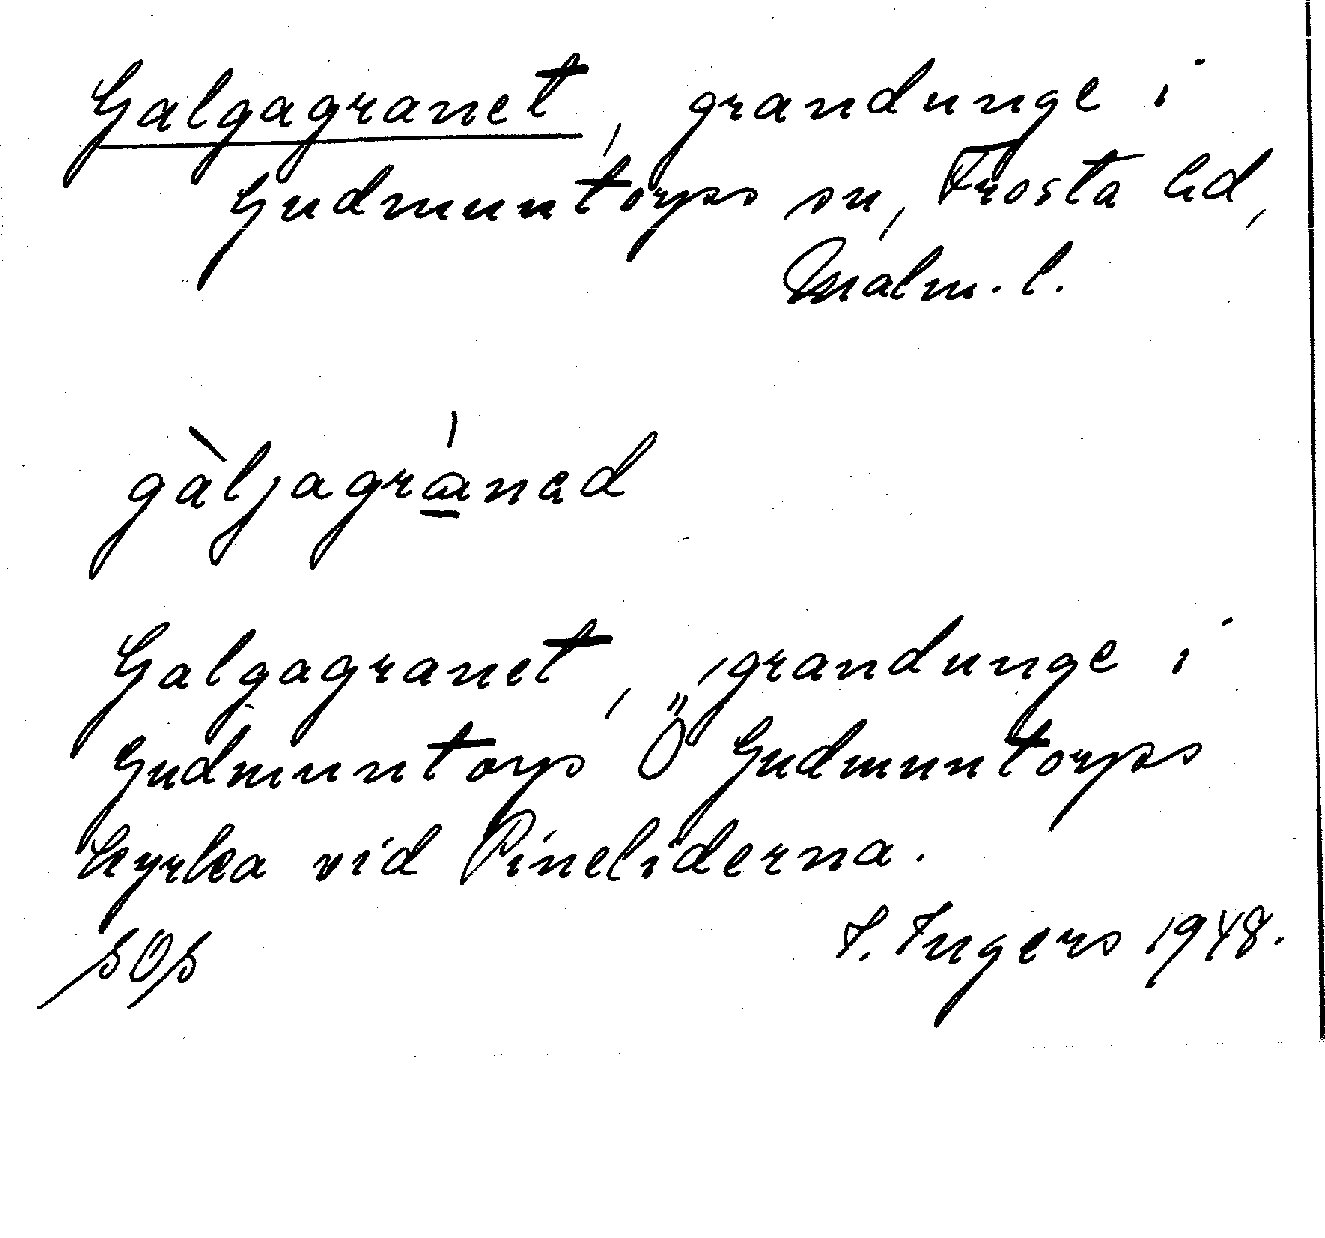 Galgagranet, grandunge i
Gudmuntorps sn, Frosta hd,
Malm. l.
gàljagránad
Galgagranet, grandunge i
Gudmuntorp Ö Gudmuntorps
kyrka vid Pineliderna.
I. Ingers 1948.